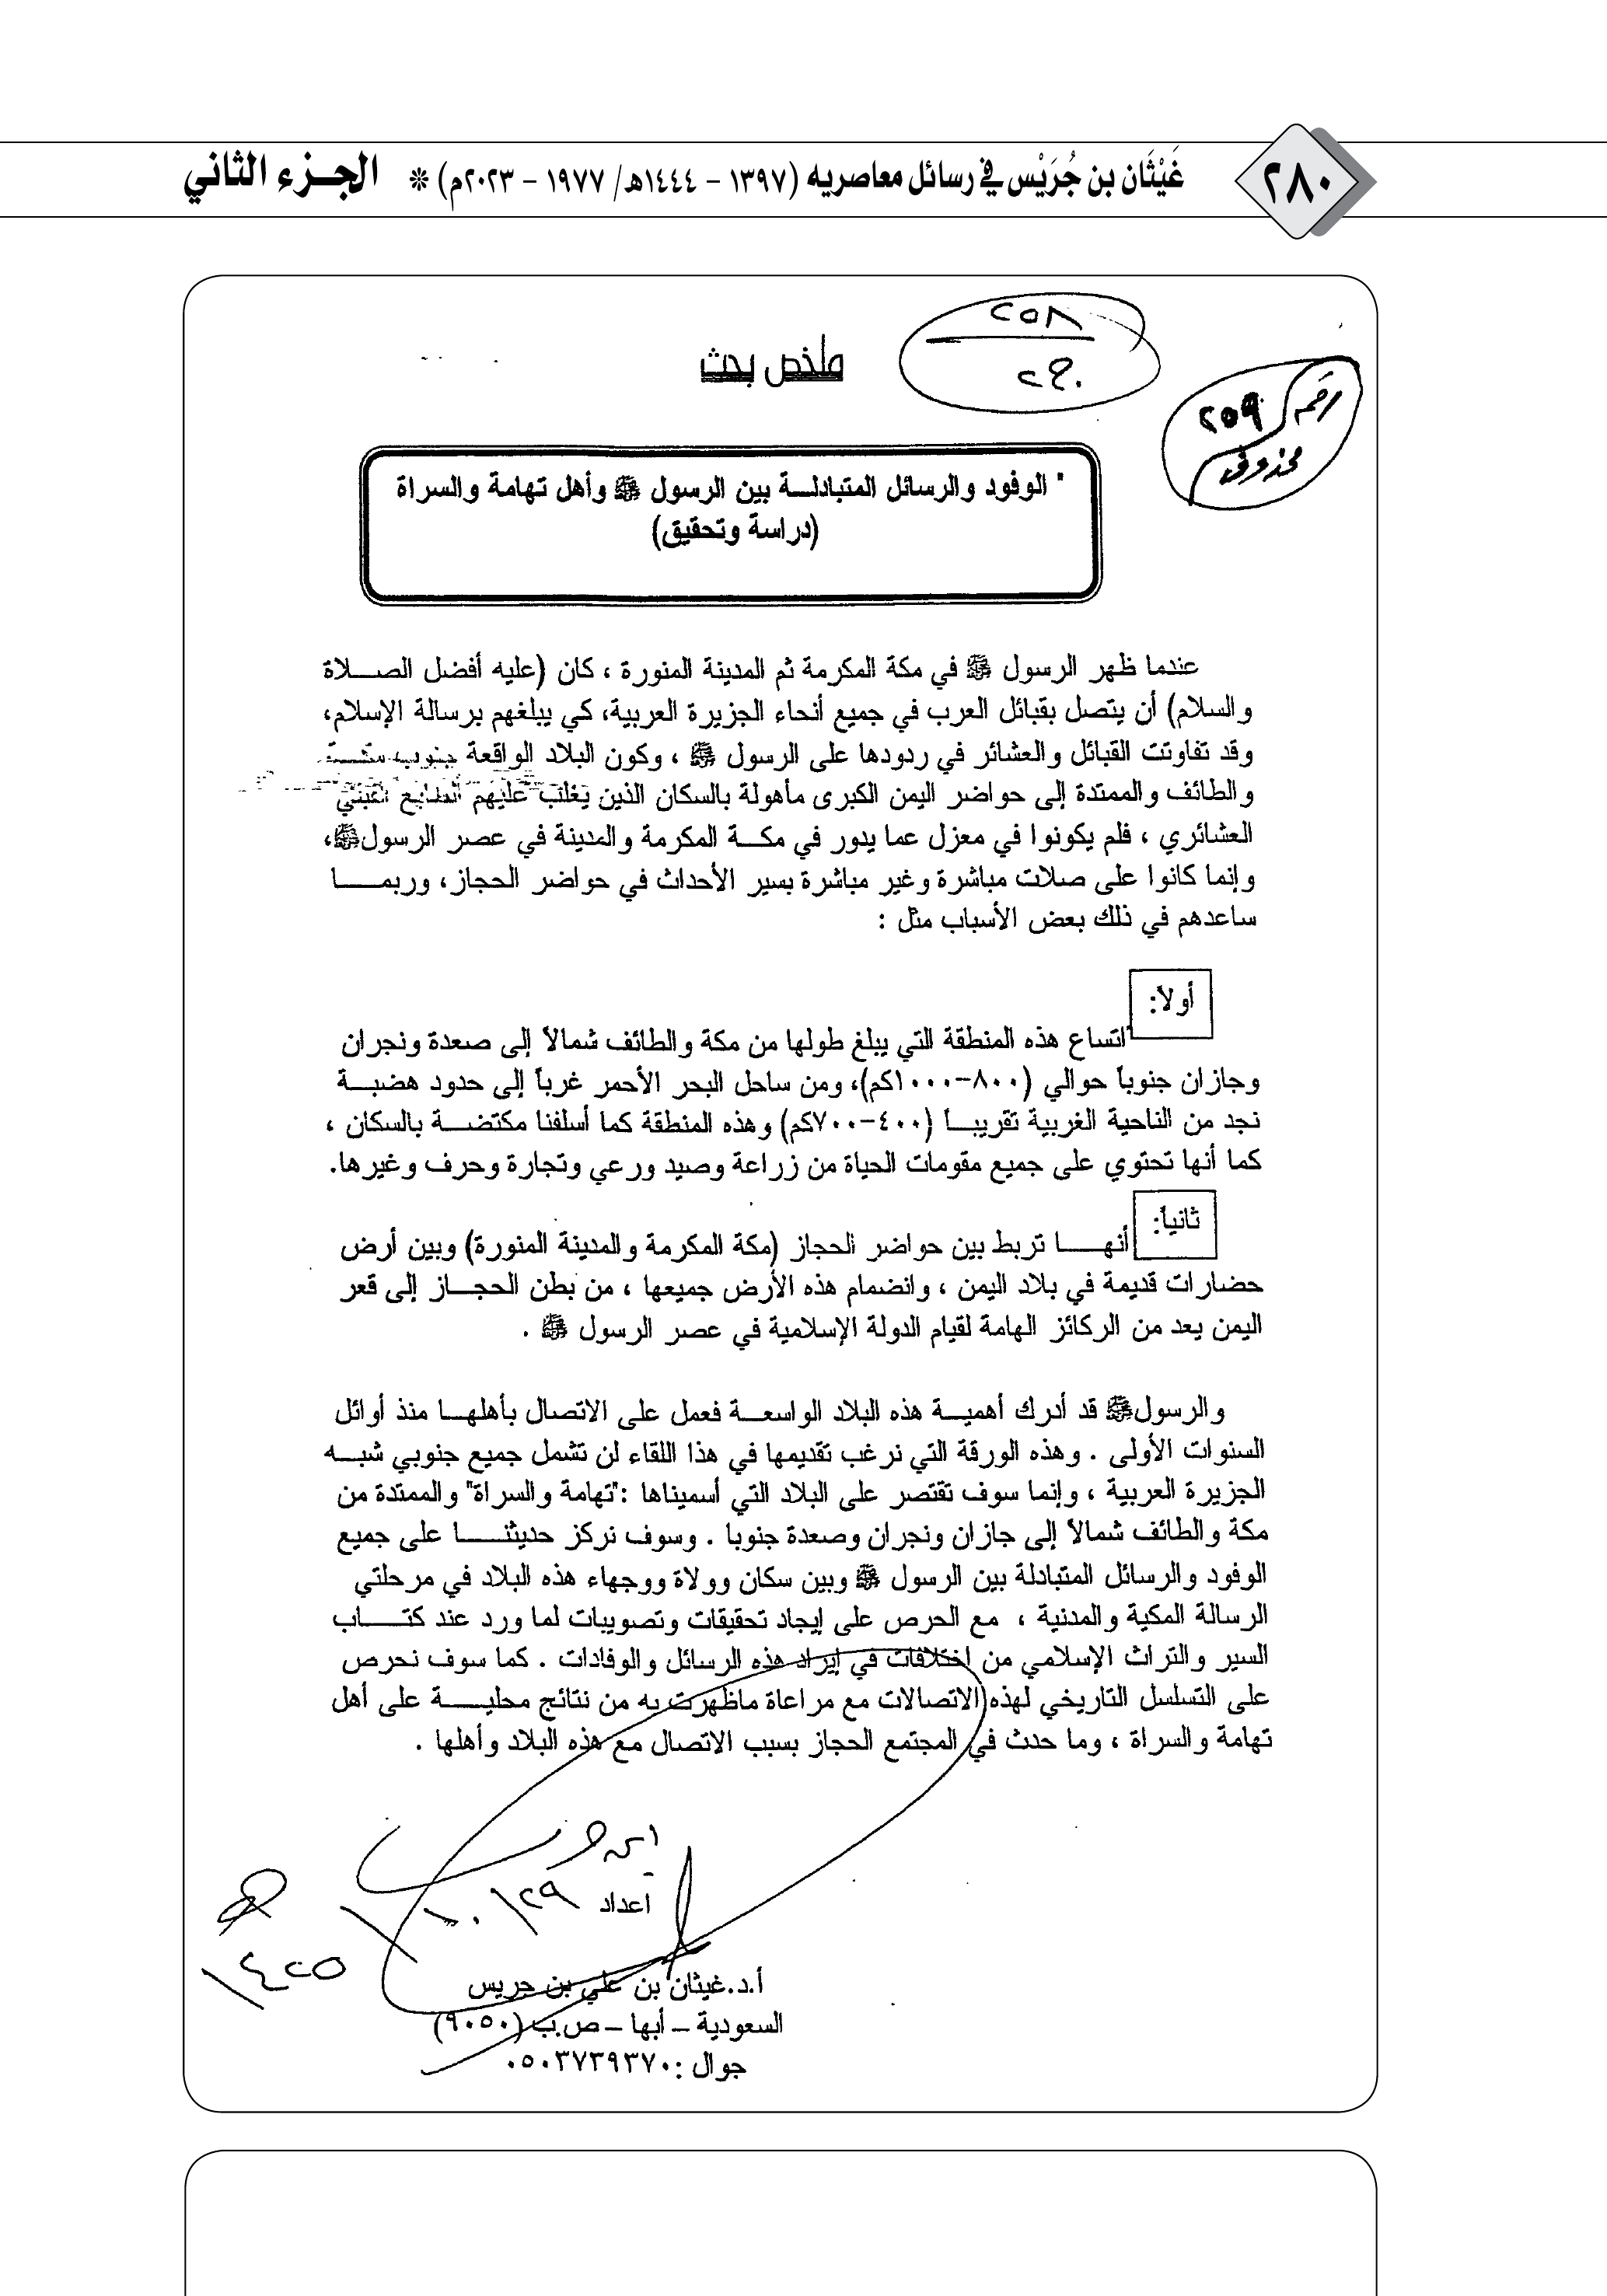 ٢٨٠
غَيْثَان بن جُرَيْس في رسائل معاصريه (١٣٩٧ - ١٤٤٤هـ/ ١٩٧٧ - ٢٠٢٣م) * الجزء الثاني
٢٥٨
رقم ٢٥٩
محذوف
ملخص بحث
" الوفود والرسائل المتبادلة بين الرسول ﷺ وأهل تهامة والسراة
(دراسة وتحقيق)
عندما ظهر الرسول ﷺ في مكة المكرمة ثم المدينة المنورة ، كان (عليه أفضل الصلاة
والسلام) أن يتصل بقبائل العرب في جميع أنحاء الجزيرة العربية، كي يبلغهم برسالة الإسلام،
وقد تفاوتت القبائل والعشائر في ردودها على الرسول ﷺ ، وكون البلاد الواقعة جنوب مكة
والطائف والممتدة إلى حواضر اليمن الكبرى مأهولة بالسكان الذين يغلب عليهم الطابع القبلي
العشائري ، فلم يكونوا في معزل عما يدور في مكة المكرمة والمدينة في عصر الرسولﷺ،
وإنما كانوا على صلات مباشرة وغير مباشرة بسير الأحداث في حواضر الحجاز، وربما
ساعدهم في ذلك بعض الأسباب مثل :
أولاً:
اتساع هذه المنطقة التي يبلغ طولها من مكة والطائف شمالاً إلى صعدة ونجران
وجازان جنوباً حوالي (٨٠٠-١٠٠٠كم)، ومن ساحل البحر الأحمر غرباً إلى حدود هضبة
نجد من الناحية الغربية تقريباً (٤٠٠-٧٠٠كم) وهذه المنطقة كما أسلفنا مكتضة بالسكان ،
كما أنها تحتوي على جميع مقومات الحياة من زراعة وصيد ورعي وتجارة وحرف وغيرها.
ثانياً:
أنها تربط بين حواضر الحجاز (مكة المكرمة والمدينة المنورة) وبين أرض
حضارات قديمة في بلاد اليمن ، وانضمام هذه الأرض جميعها ، من بطن الحجاز إلى قعر
اليمن يعد من الركائز الهامة لقيام الدولة الإسلامية في عصر الرسول ﷺ .
والرسولﷺ قد أدرك أهمية هذه البلاد الواسعة فعمل على الاتصال بأهلها منذ أوائل
السنوات الأولى . وهذه الورقة التي نرغب تقديمها في هذا اللقاء لن تشمل جميع جنوبي شبه
الجزيرة العربية ، وإنما سوف تقتصر على البلاد التي أسميناها :"تهامة والسراة" والممتدة من
مكة والطائف شمالاً إلى جازان ونجران وصعدة جنوبا . وسوف نركز حديثنا على جميع
الوفود والرسائل المتبادلة بين الرسول ﷺ وبين سكان وولاة ووجهاء هذه البلاد في مرحلتي
الرسالة المكية والمدنية ، مع الحرص على إيجاد تحقيقات وتصويبات لما ورد عند كتاب
السير والتراث الإسلامي من اختلافات في إيراد هذه الرسائل والوفادات . كما سوف نحرص
على التسلسل التاريخي لهذه الاتصالات مع مراعاة ماظهرت به من نتائج محلية على أهل
تهامة والسراة ، وما حدث في المجتمع الحجاز بسبب الاتصال مع هذه البلاد وأهلها .
اعداد
أ.د.غيثان بن علي بن جريس
السعودية – أبها – ص.ب (٩٠٥٠)
جوال :٠٥٠٣٧٣٩٣٧٠